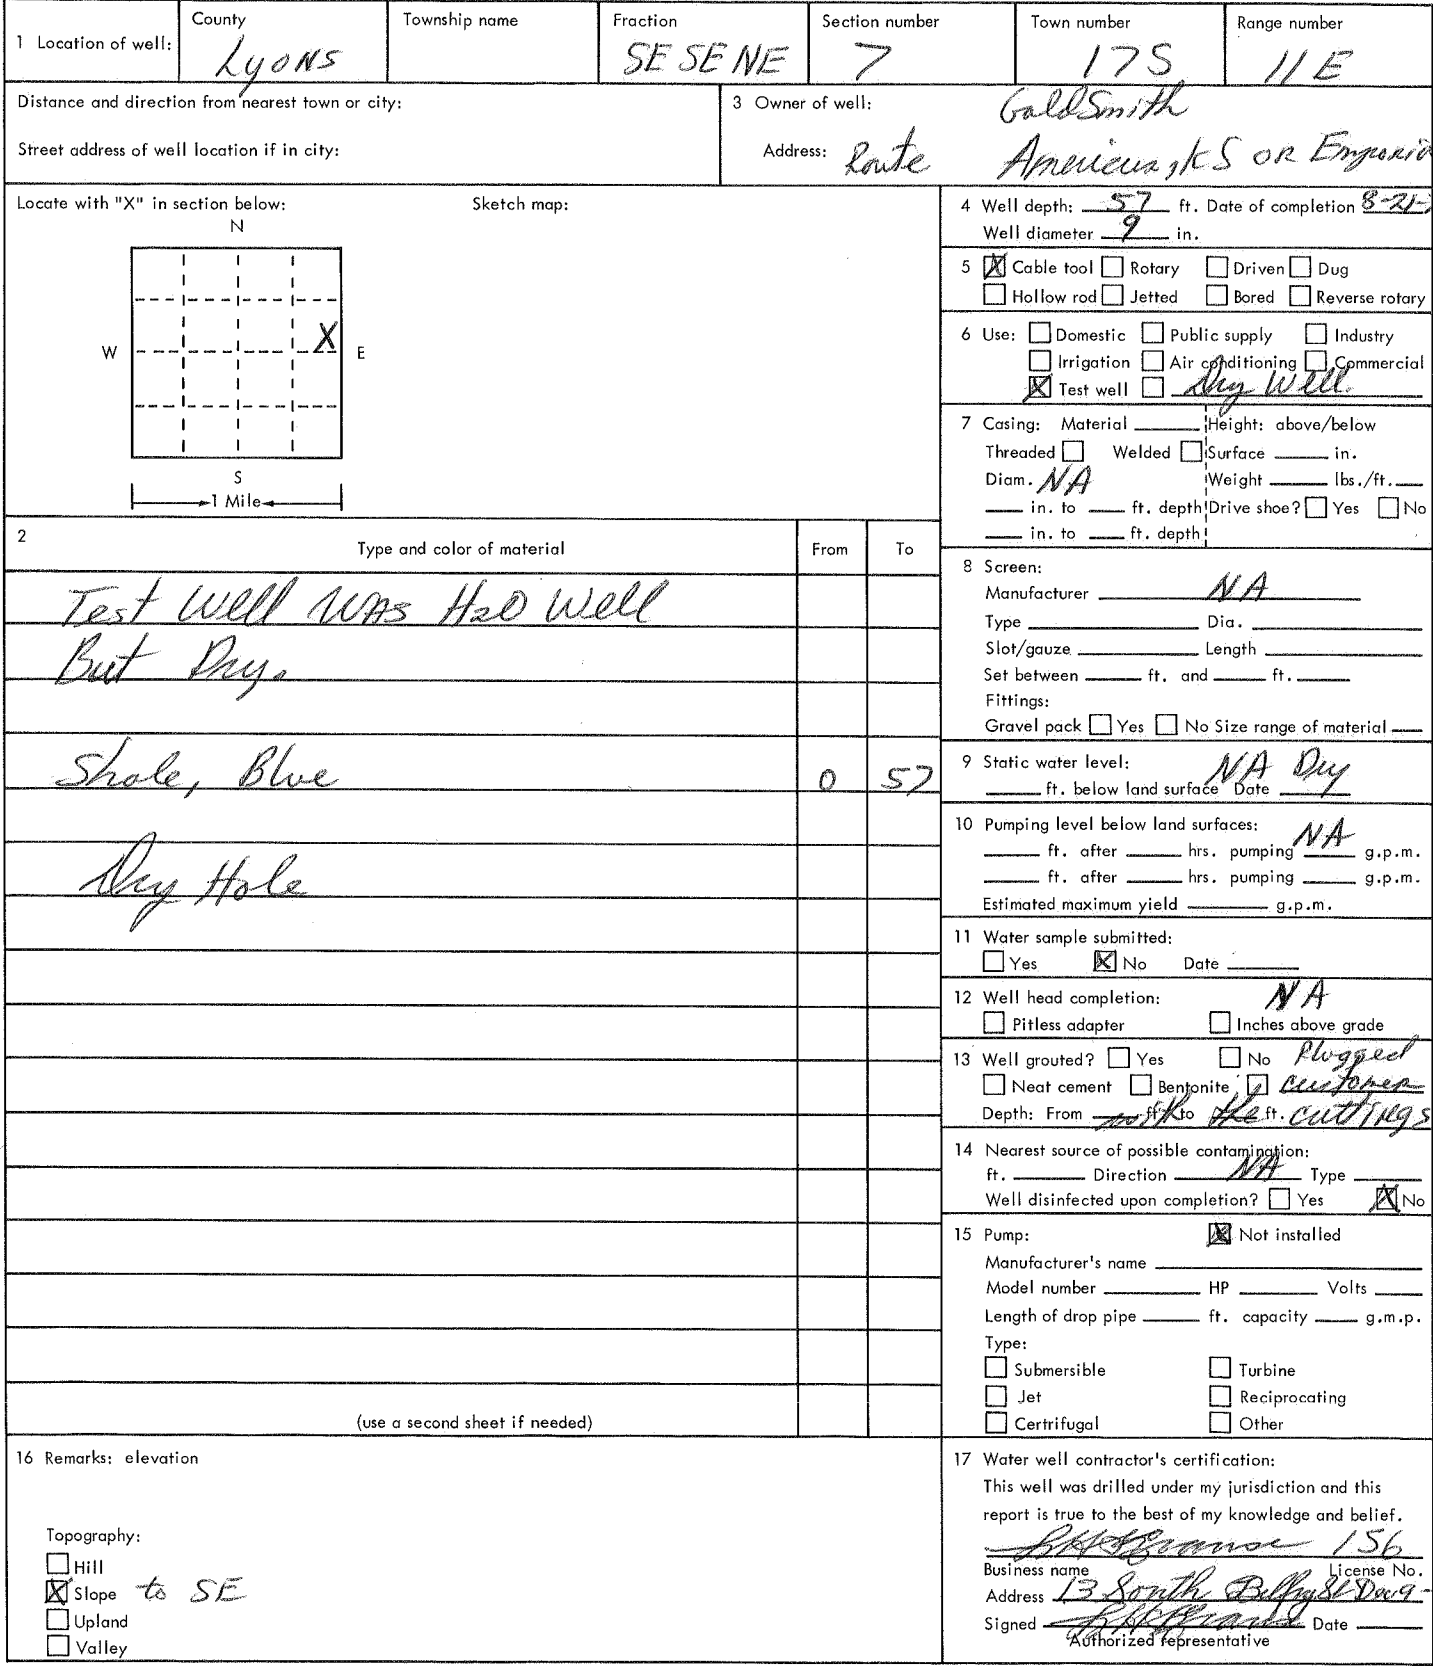 1 Location of well:
County Lyons
Township name
Fraction SE SE NE
Section number 7
Town number 17S
Range number 11E
Distance and direction from nearest town or city:
Street address of well location if in city:
3 Owner of well: GoldSmith
Address: Route Americus, KS OR Emporia
Locate with "X" in section below:
Sketch map:
N
W X E
S
1 Mile
4 Well depth: 57 ft. Date of completion 8-21-
Well diameter 9 in.
5 X Cable tool Rotary Driven Dug
Hollow rod Jetted Bored Reverse rotary
6 Use: Domestic Public supply Industry
Irrigation Air conditioning Commercial
X Test well Dry Well.
7 Casing: Material Height: above/below
Threaded Welded Surface in.
Diam. NA Weight lbs./ft.
in. to ft. depth Drive shoe? Yes No
in. to ft. depth
2 Type and color of material From To
Test Well WAS H2O Well
But Dry.
Shale, Blue 0 57
Dry Hole
(use a second sheet if needed)
8 Screen:
Manufacturer NA
Type Dia.
Slot/gauze Length
Set between ft. and ft.
Fittings:
Gravel pack Yes No Size range of material
9 Static water level: NA Dry
ft. below land surface Date
10 Pumping level below land surfaces: NA
ft. after hrs. pumping g.p.m.
ft. after hrs. pumping g.p.m.
Estimated maximum yield g.p.m.
11 Water sample submitted:
Yes X No Date
12 Well head completion: NA
Pitless adapter Inches above grade
13 Well grouted? Yes No Plugged
Neat cement Bentonite by customer
Depth: From ft. to ft. with the cuttings
14 Nearest source of possible contamination:
ft. Direction NA Type
Well disinfected upon completion? Yes X No
15 Pump: X Not installed
Manufacturer's name
Model number HP Volts
Length of drop pipe ft. capacity g.m.p.
Type:
Submersible Turbine
Jet Reciprocating
Certrifugal Other
16 Remarks: elevation
Topography:
Hill
X Slope to SE
Upland
Valley
17 Water well contractor's certification:
This well was drilled under my jurisdiction and this
report is true to the best of my knowledge and belief.
156
Business name License No.
Address 13 South
Signed Date
Authorized representative